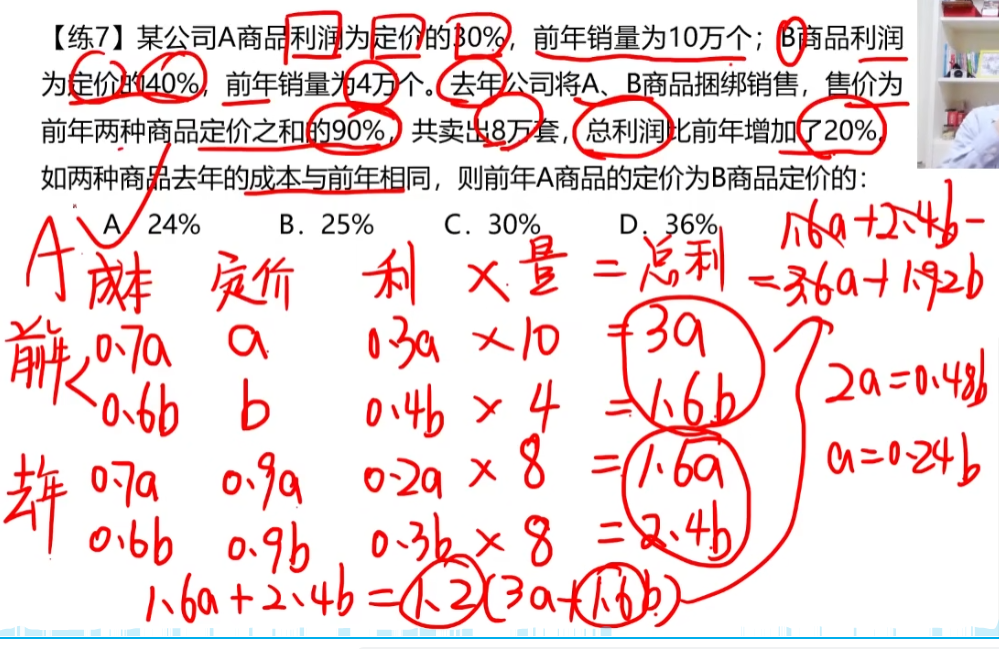 【练7】某公司A商品利润为定价的30%，前年销量为10万个；B商品利润
为定价的40%，前年销量为4万个。去年公司将A、B商品捆绑销售，售价为
前年两种商品定价之和的90%，共卖出8万套，总利润比前年增加了20%。
如两种商品去年的成本与前年相同，则前年A商品的定价为B商品定价的：
A. 24% B. 25% C. 30% D. 36%
A
成本 定价 利 × 量 = 总利
前年 0.7a a 0.3a × 10 = 3a
0.6b b 0.4b × 4 = 1.6b
去年 0.7a 0.9a 0.2a × 8 = 1.6a
0.6b 0.9b 0.3b × 8 = 2.4b
1.6a+2.4b=1.2(3a+1.6b)
1.6a+2.4b
=3.6a+1.92b
2a=0.48b
a=0.24b